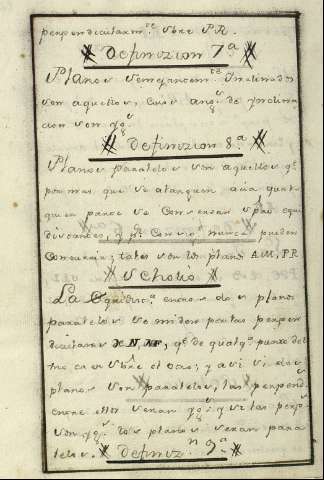 perpendicularm.te sbre PR.
Definizion 7.a
Planos semejantem.te Inclinados
son aquellos, cuios ang.s de Inclina
cion son yg.s
Definizion 8.a
Planos paralelos son aquellos q.e
por mas que se alarguen acia qual
quier parte se conservan spre equi
distantes, y p.r consig.te nunca pueden
Concurrir; tales son los planos AM, PR
Scholio
La Equidist.a entre dos planos
paralelos se miden por las perpen
diculares N, NF, q.e de qualq.r punto del
uno caen sbre el otro; y asi si dos
planos son paralelos, las perpend.
entre ellos seran yg.s y si las perp.s
son yg.s los planos seran para
lelos.
Definiz.n 9.a